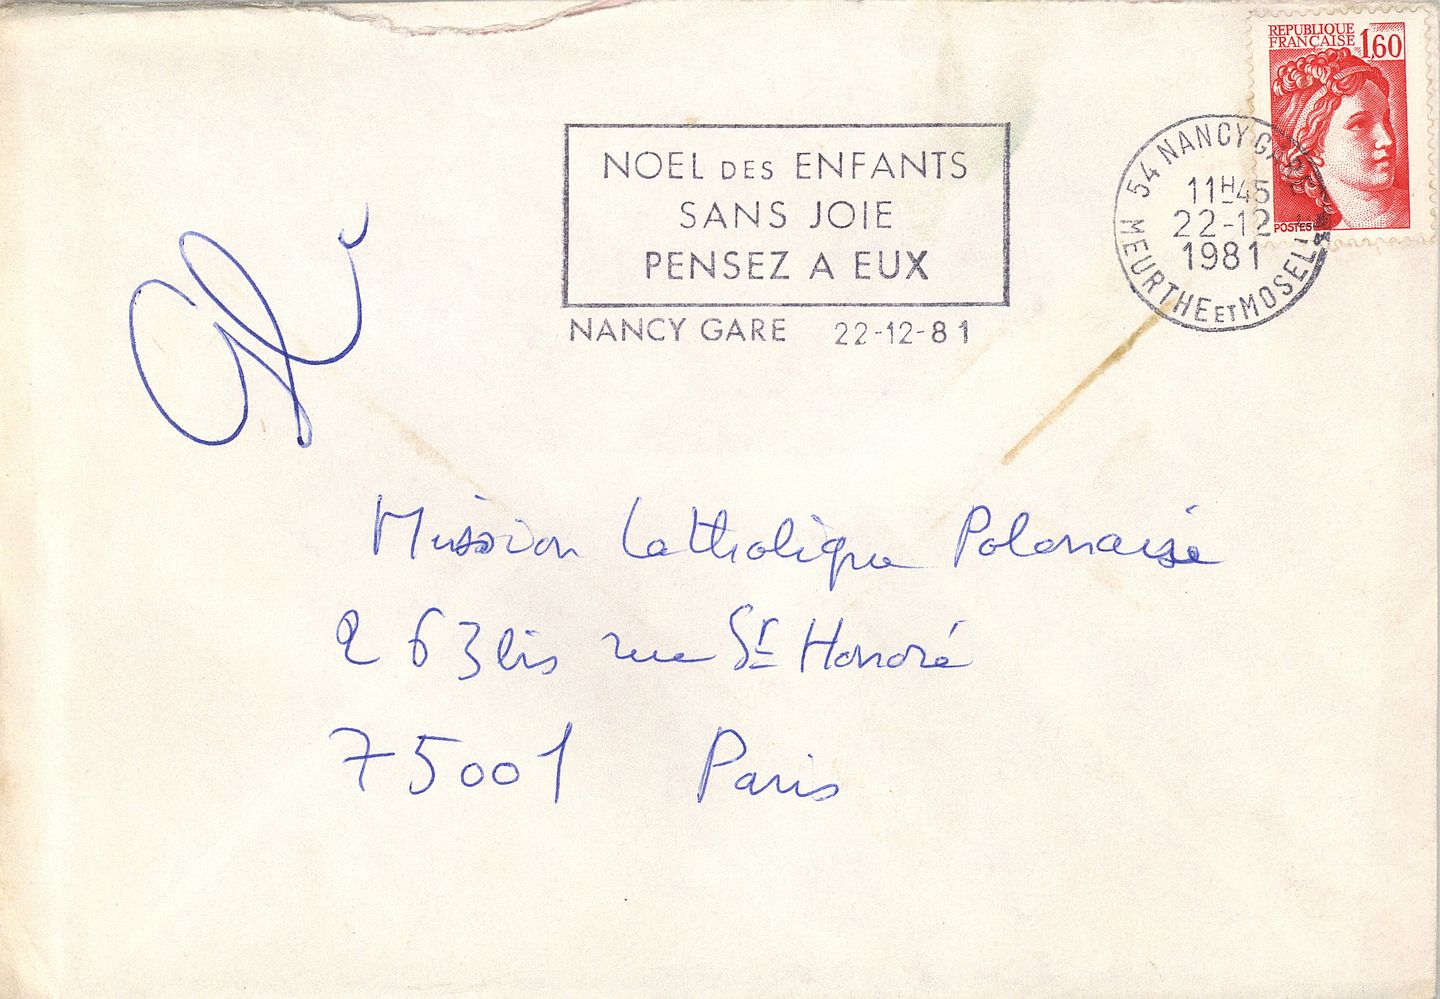 REPUBLIQUE
FRANÇAISE 1,60
POSTES
54 NANCY GARE
11H45
22-12
1981
MEURTHE ET MOSELLE
NOEL DES ENFANTS
SANS JOIE
PENSEZ A EUX
NANCY GARE 22-12-81
Mission Catholique Polonaise
263 bis rue St Honoré
75001 Paris